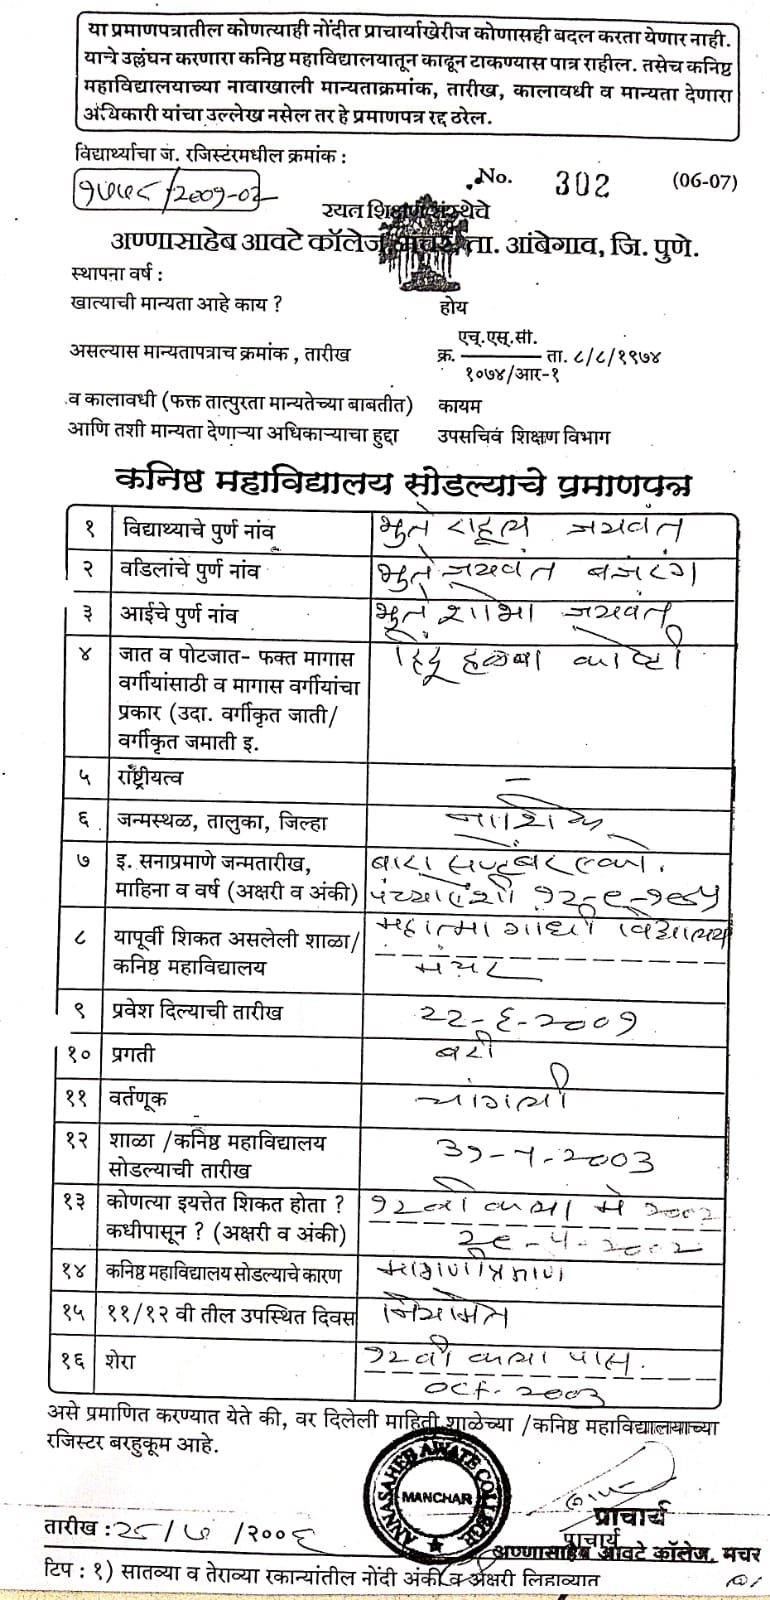 या प्रमाणपत्रातील कोणत्याही नोंदीत प्राचार्याखेरीज कोणासही बदल करता येणार नाही.
याचे उल्लंघन करणारा कनिष्ठ महाविद्यालयातून काढून टाकण्यास पात्र राहील. तसेच कनिष्ठ
महाविद्यालयाच्या नावाखाली मान्यताक्रमांक, तारीख, कालावधी व मान्यता देणारा
अधिकारी यांचा उल्लेख नसेल तर हे प्रमाणपत्र रद्द ठरेल.
विद्यार्थ्याचा ज. रजिस्टरमधील क्रमांक :
No. 302 (06-07)
/२००१-०२
रयत शिक्षण संस्थेचे
अण्णासाहेब आवटे कॉलेज, मंचर, ता. आंबेगाव, जि. पुणे.
स्थापना वर्ष :
खात्याची मान्यता आहे काय ? होय
असल्यास मान्यतापत्राच क्रमांक , तारीख क्र. एच्.एस्.सी. / १०७४/आर-१ ता. ८/८/१९७४
व कालावधी (फक्त तात्पुरता मान्यतेच्या बाबतीत) कायम
आणि तशी मान्यता देणाऱ्या अधिकाऱ्याचा हुद्दा उपसचिव शिक्षण विभाग
कनिष्ठ महाविद्यालय सोडल्याचे प्रमाणपत्र
१ विद्याथ्याचे पुर्ण नांव भुते राहूल जयवंत
२ वडिलांचे पुर्ण नांव भुते जयवंत बजरंग
३ आईचे पुर्ण नांव भूते शोभा जयवंत
४ जात व पोटजात- फक्त मागास हिंदू हळबा कोष्टी
वर्गीयांसाठी व मागास वर्गीयांचा
प्रकार (उदा. वर्गीकृत जाती/
वर्गीकृत जमाती इ.
५ राष्ट्रीयत्व –
६ जन्मस्थळ, तालुका, जिल्हा नाशिक
७ इ. सनाप्रमाणे जन्मतारीख, बारा सप्टेंबर एकोणीसशे
माहिना व वर्ष (अक्षरी व अंकी) पंच्याऐंशी १२-९-१९८५
८ यापूर्वी शिकत असलेली शाळा/ महात्मा गांधी विद्यालय
कनिष्ठ महाविद्यालय मंचर
९ प्रवेश दिल्याची तारीख २२-६-२००१
१० प्रगती बरी
११ वर्तणूक चांगली
१२ शाळा /कनिष्ठ महाविद्यालय
सोडल्याची तारीख
१३ कोणत्या इयत्तेत शिकत होता ? १२वी कला मे २००२
कधीपासून ? (अक्षरी व अंकी) २९-५-२००२
१४ कनिष्ठ महाविद्यालय सोडल्याचे कारण मागणीप्रमाणे
१५ ११/१२ वी तील उपस्थित दिवस नियमित
१६ शेरा १२वी कला पास.
OCT-2003
असे प्रमाणित करण्यात येते की, वर दिलेली माहिती शाळेच्या /कनिष्ठ महाविद्यालयाच्या
रजिस्टर बरहुकूम आहे.
ANNASAHEB AWATE COLLEGE
MANCHAR
प्राचार्य
तारीख : २८/७/२००६
प्राचार्य
अण्णासाहेब आवटे कॉलेज, मंचर
टिप : १) सातव्या व तेराव्या रकान्यांतील नोंदी अंकी व अक्षरी लिहाव्यात